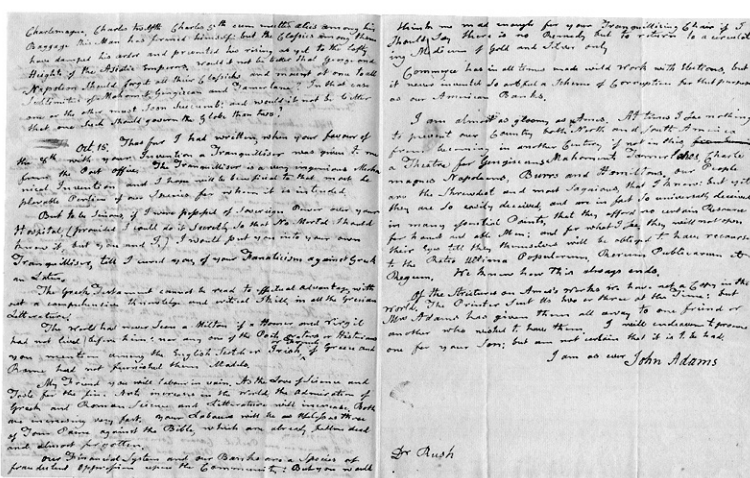 Charlemagne, Charles twelfth Charles 5th cum multis aliis among his
Baggage this Man has formed himself; but the Classics among them
have damped his ardor and prevented his rising as yet to the lofty
Heights of the Asiatic Emperors. Would it not be better that George and
Napoleon should forget all their Classicks and mount at one to all
Sublimities of Mahomet, Gengizcan and Tamerlane? In that case
one or the other must soon succumb: and would it not be better
that one such should govern the Globe than two?
Oct. 15. Thus far I had written, when your favour of
the 8th with your Invention a Tranquilliser was given to me
from the Post Office. The Tranquilliser is a very ingenious Mecha
nical Invention and I hope will be beneficial to that most de
plorable Portion of our Species for whom it is intended.
But to be serious, if I were possessed of Sovereign Power over your
Hospital, (provided I could do it Secretly so that No Mortal should
know it, but you and I,) I would put you into your own
Tranquilliser, till I cured you, of your Fanaticism against Greek
an Latin.
The Greek Testament cannot be read to effectual advantage with
out a comprehensive knowledge and critical Skill, in all the Grecian
Litterature.
The World has never seen a Milton if a Homer and Virgil
had not lived before him: nor any one of the Poets Orators or Historians
you mention among the English Scotch or Irish, if Greece and
Rome had not furnished them Models.
My Friend you will labour in vain. As the Love of Science and
Taste for the fine Arts increases in the World, the Admiration of
Greek and Roman Science and Litterature will increase. Both
are increasing very fast. Your Labours will be as useless as those
of Tom Paine against the Bible, which are already fallen dead
and almost forgotten.
Our Financial System and our Banks are a Species of
fraudulent Oppression upon the Community: But you would
think me mad enough for your Tranquillizing Chair if I
Should Say there is no Remedy but to return to a circulat
ing Medium of Gold and Silver only
Commerce has in all times made wild Work with Elections, but
it never invented so artful a Scheme of Corruption for that purpose
as our American Banks.
I am almost as gloomy as Ames. At times I see nothing
to prevent our Country both North and South America
from becoming in another Century, if not in this,
a Theatre for Gengizcans Mahomets Tamerlanes, Charle
magnes Napoleons, Burrs and Hamiltons. Our People
are the Shrewdest and most Sagacious, that I know: but yet
they are so easily deceived, and are in fact so universally deceived
in many essential Points, that they afford no certain Resource
for honest and able Men; and for what I see, they will not open
their eyes till they themselves will be obliged to have recourse
to the Ratio Ultima Populorum, Rerum Publicarum et
Regum. We know how this always ends.
Of the Strictures on Ames's Works We have not a Copy in the
World. The Printer Sent Us two or three at the Time: but
Mrs Adams has given them all away to one friend or
another who wished to have them. I will endeavour to procure
one for your Son; but am not certain that it is to be had.
I am as ever John Adams
Dr Rush